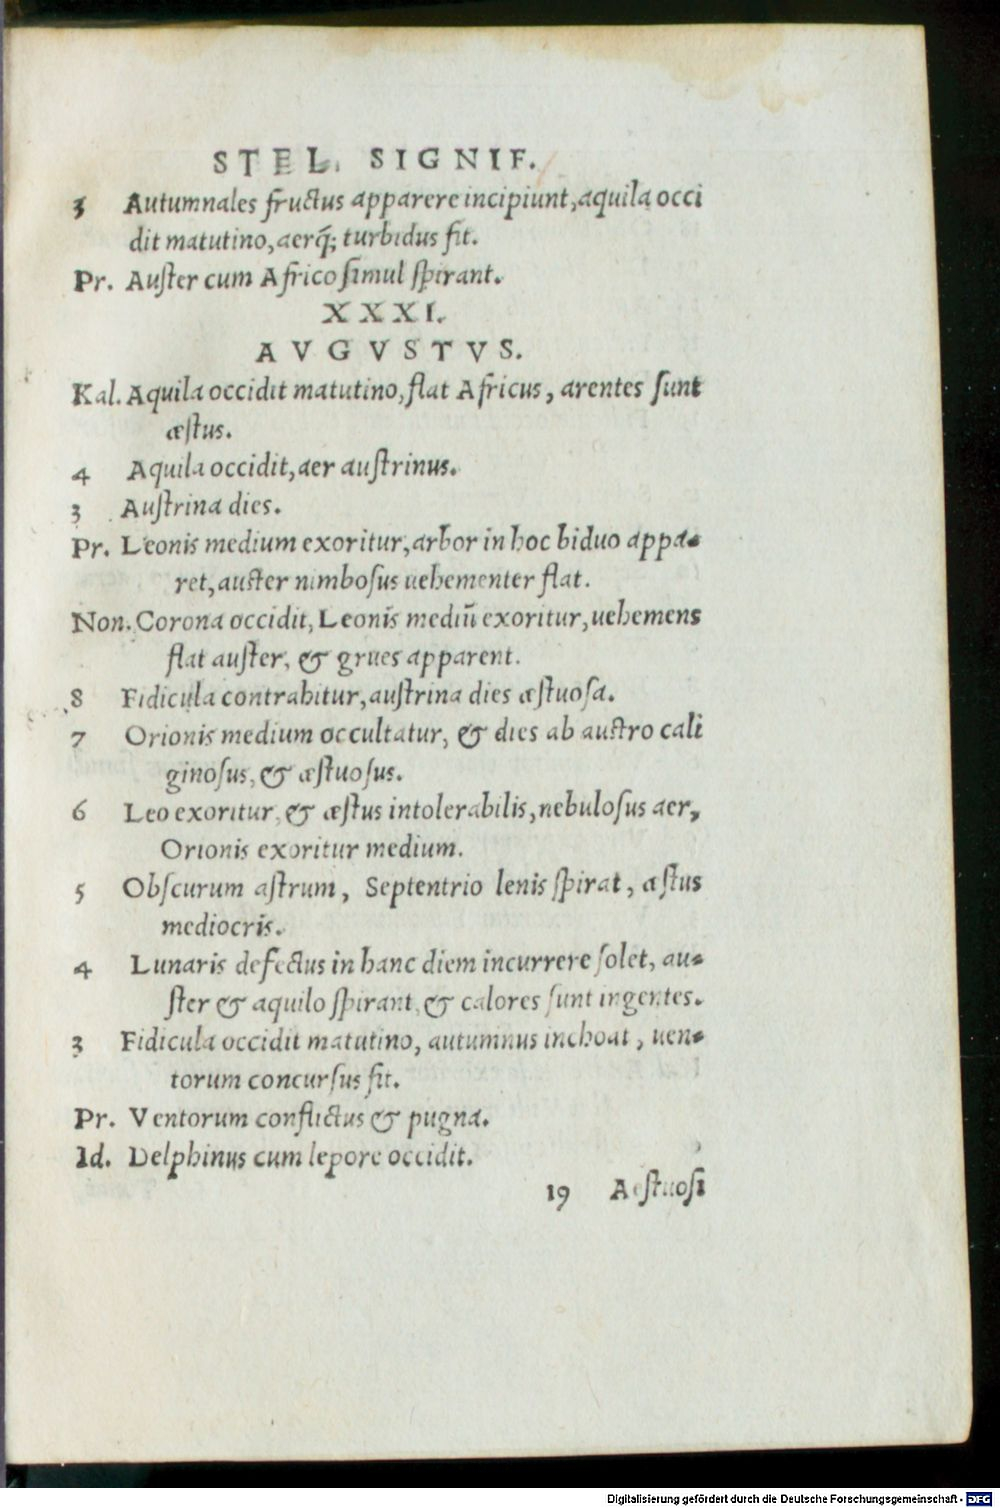 STEL. SIGNIF.
3 Autumnales fructus apparere incipiunt, aquila occi
dit matutino, aerq́; turbidus fit.
Pr. Auſter cum Africo ſimul ſpirant.
XXXI.
AVGVSTVS.
Kal. Aquila occidit matutino, flat Africus, arentes ſunt
æſtus.
4 Aquila occidit, aer auſtrinus.
3 Auſtrina dies.
Pr. Leonis medium exoritur, arbor in hoc biduo appa-
ret, auſter nimboſus uehementer flat.
Non. Corona occidit, Leonis mediũ exoritur, uehemens
flat auſter, & grues apparent.
8 Fidicula contrahitur, auſtrina dies æſtuoſa.
7 Orionis medium occultatur, & dies ab auſtro cali
ginoſus, & æſtuoſus.
6 Leo exoritur, & æſtus intolerabilis, nebuloſus aer,
Orionis exoritur medium.
5 Obſcurum aſtrum, Septentrio lenis ſpirat, æſtus
mediocris.
4 Lunaris defectus in hanc diem incurrere ſolet, au-
ſter & aquilo ſpirant, & calores ſunt ingentes.
3 Fidicula occidit matutino, autumnus inchoat, uen-
torum concurſus fit.
Pr. Ventorum conflictus & pugna.
Id. Delphinus cum lepore occidit.
19 Aeſtuoſi
Digitalisierung gefördert durch die Deutsche Forschungsgemeinschaft - DFG